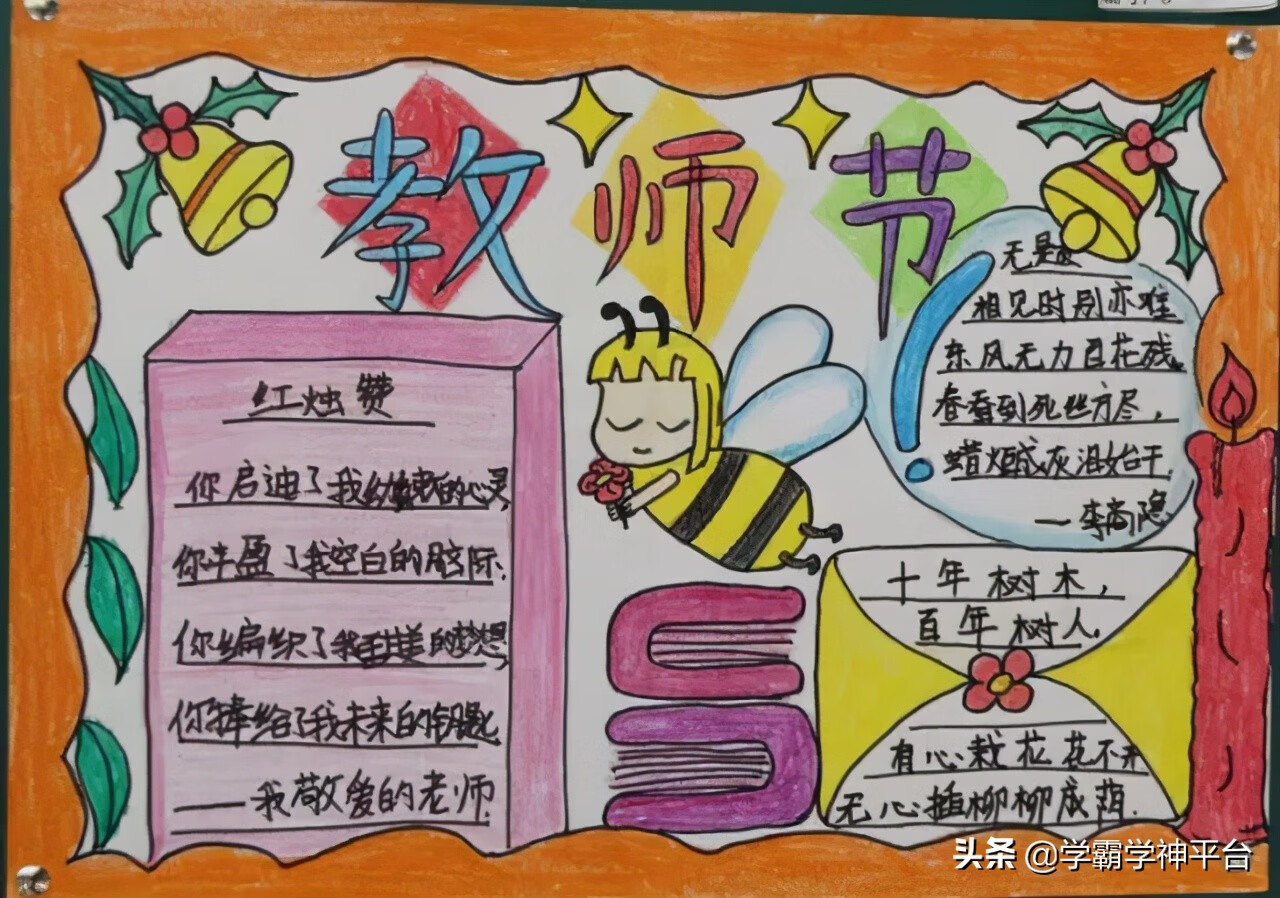 教师节
红烛赞
你启迪了我幼稚的心灵
你丰盈了我空白的脑际.
你编织了我甜美的梦想
你捧给了我未来的钥匙
——我敬爱的老师.
无题
相见时别亦难
东风无力百花残。
春蚕到死丝方尽，
蜡炬成灰泪始干.
—李商隐
十年树木，
百年树人.
有心栽花花不开
无心插柳柳成荫.
头条 @学霸学神平台